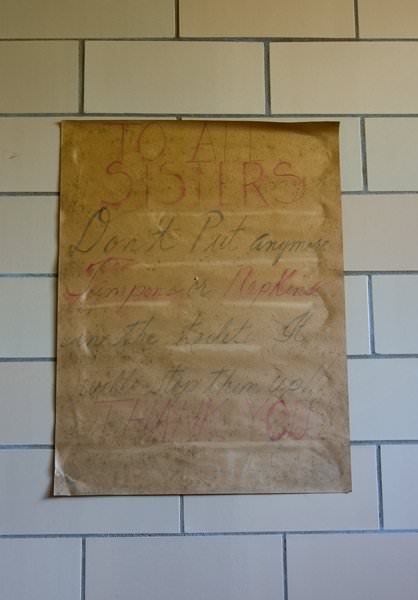 TO ALL
SISTERS
Don't Put anymore
Timpons or Napkins
in the toilet. It
will stop them up!
THANK YOU